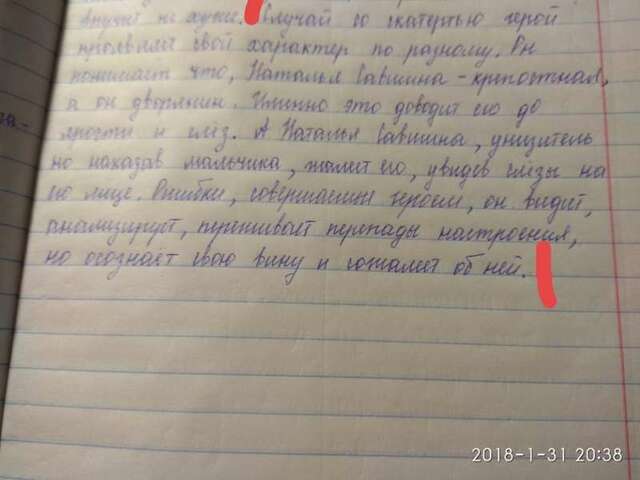 внучат не хуже. Случай со скатертью герой
проявляет свой характер по разному. Он
понимает что, Наталья Савишна - крепостная,
а он дворянин. Именно это доводит его до
ярости и слёз. А Наталья Савишна, унизитель
но наказав мальчика, жалеет его, увидев слёзы на
его лице. Ошибки, совершаемые героем, он видит,
анализирует, переживает перепады настроения,
но осознаёт свою вину и сожалеет об ней.
2018-1-31 20:38